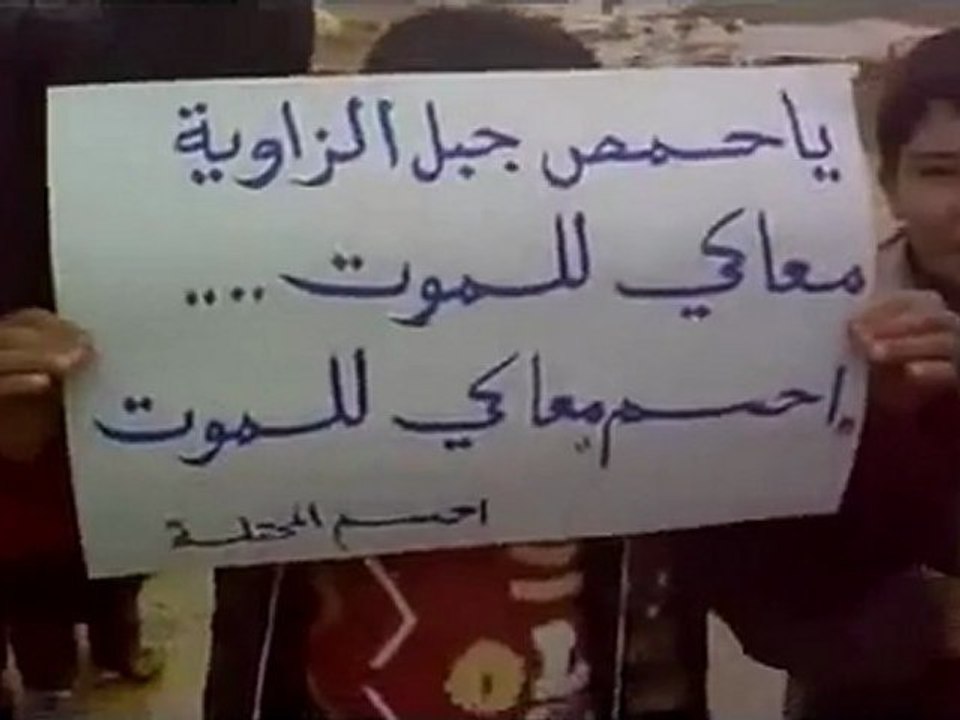 ياحمص جبل الزاوية
معاكي للموت ....
"احسم" معاكي للموت
احسم المحتلة